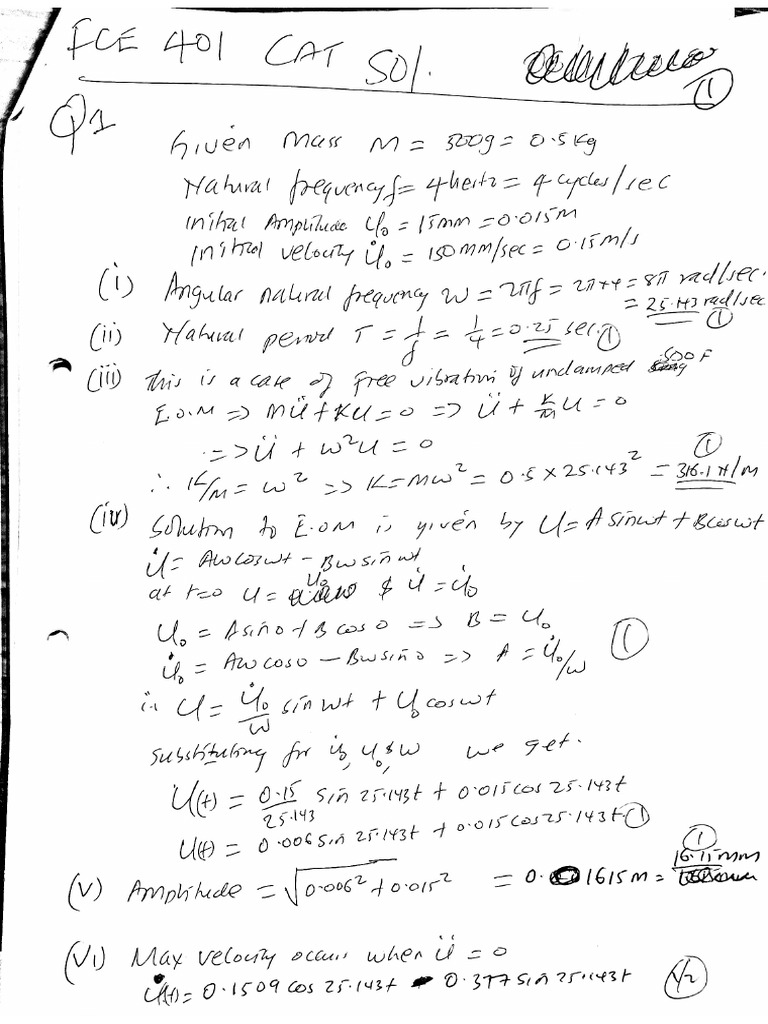 FCE 401 CAT Sol.
①
Q1
Given Mass M = 500g = 0.5kg
Natural frequency f = 4hertz = 4 cycles/sec
initial Amplitude U₀ = 15mm = 0.015m
initial velocity U̇₀ = 150mm/sec = 0.15m/s
(i) Angular natural frequency ω = 2πf = 2π×4 = 8π rad/sec.
= 25.143 rad/sec ①
(ii) Natural period T = 1/f = 1/4 = 0.25 sec. ①
(iii) This is a case of free vibration of undamped SDOF
E.O.M => MÜ + KU = 0 => Ü + K/M U = 0
=> Ü + ω²U = 0
∴ K/M = ω² => K = Mω² = 0.5 × 25.143² = 316.1 N/m ①
(iv) Solution to E.O.M is given by U = A sinωt + B cosωt
U̇ = Aω cosωt – Bω sinωt
at t=0 U = U₀ & U̇ = U̇₀
U₀ = A sin0 + B cos0 => B = U₀
U̇₀ = Aω cos0 – Bω sin0 => A = U̇₀/ω ①
∴ U = U̇₀/ω sinωt + U₀ cosωt
substituting for U̇₀, U₀ & ω we get.
U(t) = 0.15/25.143 sin 25.143t + 0.015 cos 25.143t
U(t) = 0.006 sin 25.143t + 0.015 cos 25.143t ①
(V) Amplitude = √0.006² + 0.015² = 0.01615m = 16.15mm ①
(VI) Max velocity occurs when Ü = 0
U̇(t) = 0.1509 cos 25.143t - 0.377 sin 25.143t ½